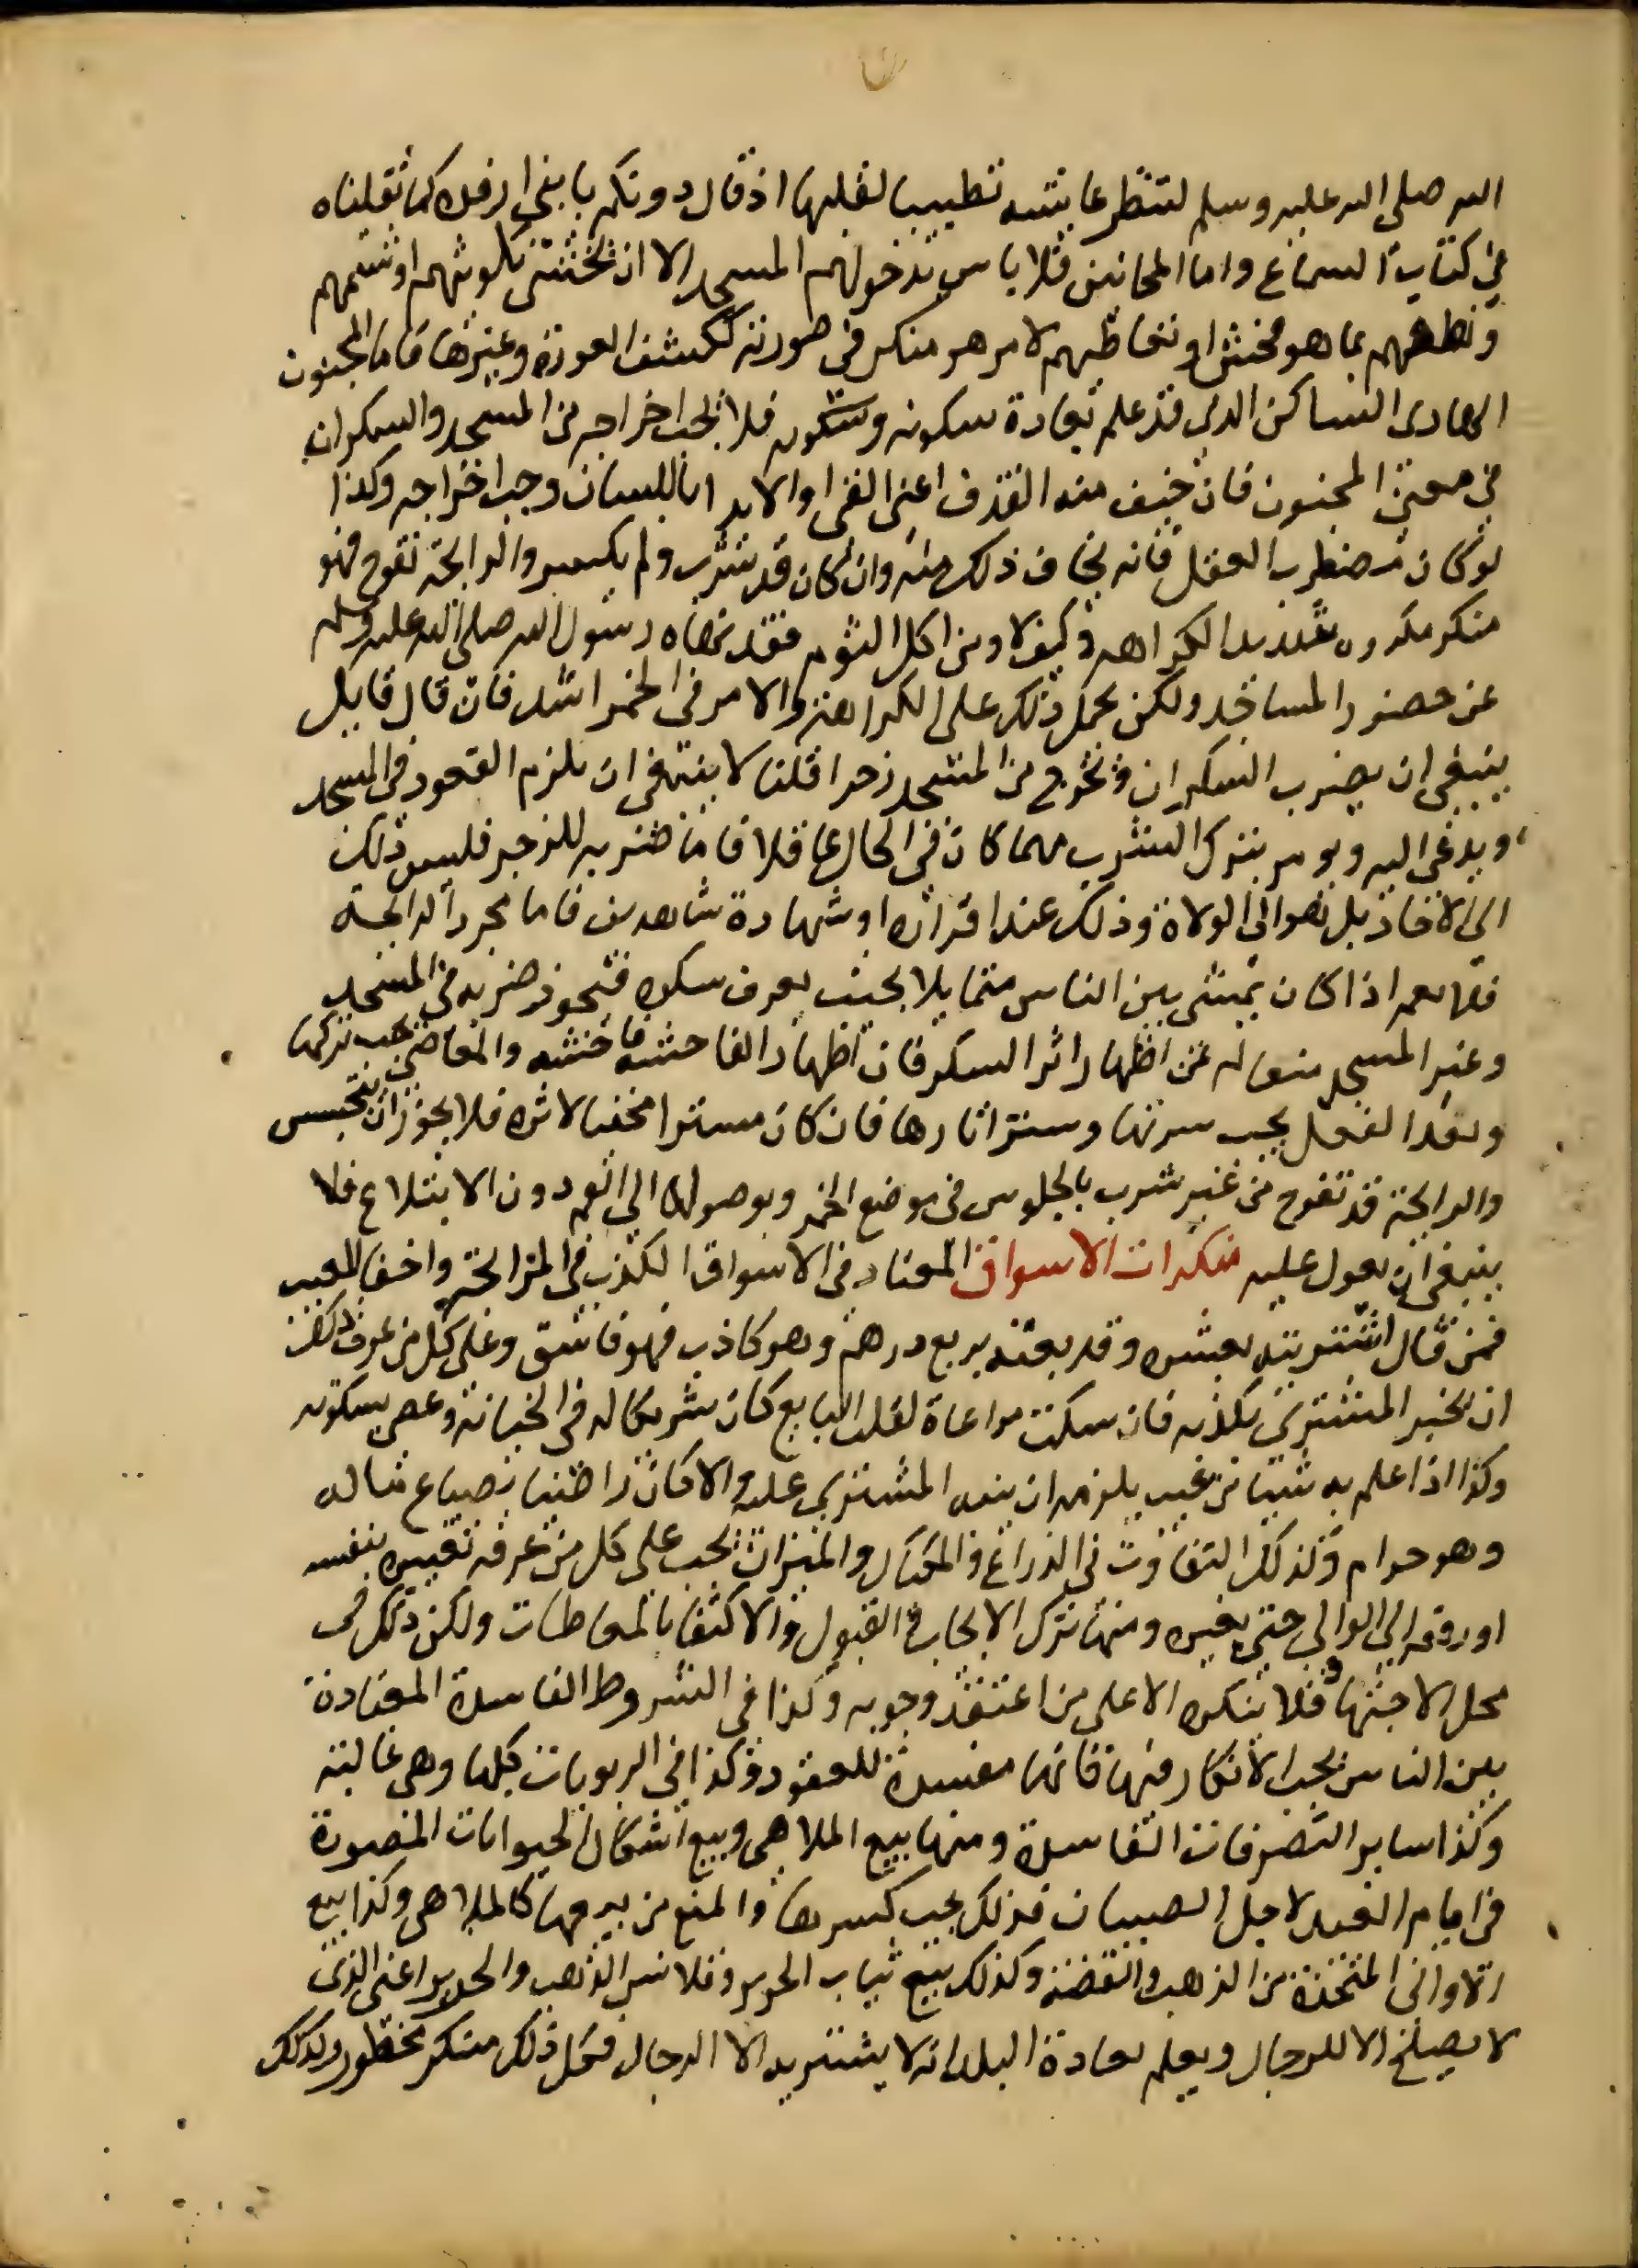 الله صلى الله عليه وسلم لتنظر عايشه تطييبا لقلبها اذ قال دونكم يا بني ارفده كما نقلناه
في كتاب السماع واما المجانين فلا باس بدخولهم المسجد الا ان يخشى تلويثهم او شتمهم
ونطقهم بما هو فحش او تعاطيهم لامر هو منكر في صورته ككشف العورة وغيرها فاما المجنون
الهادى الساكن الدي قد علم بعادة سكونه وسكوته فلا يجب اخراجه من المسجد والسكران
في معنى المجنون فان خيف منه القذف اعنى القى او الايذا باللسان وجب اخراجه وكذا
لو كان مضطرب العقل فانه يخاف ذلك منه وان كان قد شرب ولم يسكر والرايحة تفوح فهو
منكر مكروه شديد الكراهة وكيف لا ومن اكل الثوم فقد نهاه رسول الله صلى الله عليه وسلم
عن حضور المساجد ولكن يحمل ذلك على الكراهة والامر في الخمر اشد فان قال قايل
ينبغي ان يضرب السكران ويخرج من المسجد زجرا قلنا لا ينبغى ان يلزم القعود في المسجد
ويدعى اليه ويومر بترك الشرب مهما كان في الحال عاقلا فاما ضربه للزجر فليس ذلك
الى الاحاد بل هو الى الولاة وذلك عند اقراره او شهادة شاهدين فاما مجرد الرايحة
فلا نعم اذا كان يمشى بين الناس متمايلا بحيث يعرف سكره فيجوز ضربه في المسجد
وغير المسجد منعا له عن اظهار اثر السكر فان اظهار الفاحشة فاحشه والمعاصي يجب تركها
وبعد الفعل يجب سترتها وستر اثارها فان كان مستترا مخفيا لاثره فلا يجوز ان يتجسس
والرايحة قد تفوح من غير شرب بالجلوس في موضع الخمر وبوصولها الي الفم دون الابتلاع فلا
ينبغي ان يعول عليه منكرات الاسواق المعتاد في الاسواق الكذب في المرابحة واخفا العيب
فمن قال اشتريته بعشره وقد بعته بربع درهم وهو كاذب فهو فاسق وعلى كل من عرف ذلك
ان يخبر المشتري بكذبه فان سكت مراعاة لقلب البايع كان شريكا له في الخيانة وعصى بسكوته
وكذا اذا علم به شيا من عيب يلزمه ان ينبه المشتري عليه والا كان راضيا بضياع ماله
وهو حرام وكذلك التفاوت في الذراع والمكيال والميزان يجب على كل من عرفه تغييره بنفسه
او رفعه الي الوالي حتى يغيره ومنها ترك الايجاب والقبول والاكتفا بالمعاطات ولكن ذلك في
محل الاجتهاد فلا ينكره الا على من اعتقد وجوبه وكذا في الشروط الفاسدة المعتادة
بين الناس يجب الانكار فيها فانها مفسدة للعقود وكذا في الربويات كلها وهى غالبة
وكذا ساير التصرفات الفاسدة ومنها بيع الملاهى وبيع اشكال الحيوانات المصورة
في ايام العيد لاجل الصبيان فذلك يجب كسرها والمنع من بيعها كالملاهى وكذا بيع
الاواني المتخذة من الذهب والفضة وكذلك بيع ثياب الحرير وقلانس الذهب والحرير اعنى الذي
لا يصلح الا للرجال ويعلم بعادة البلد انه لا يشتريه الا الرجال فكل ذلك منكر محظور وكذلك